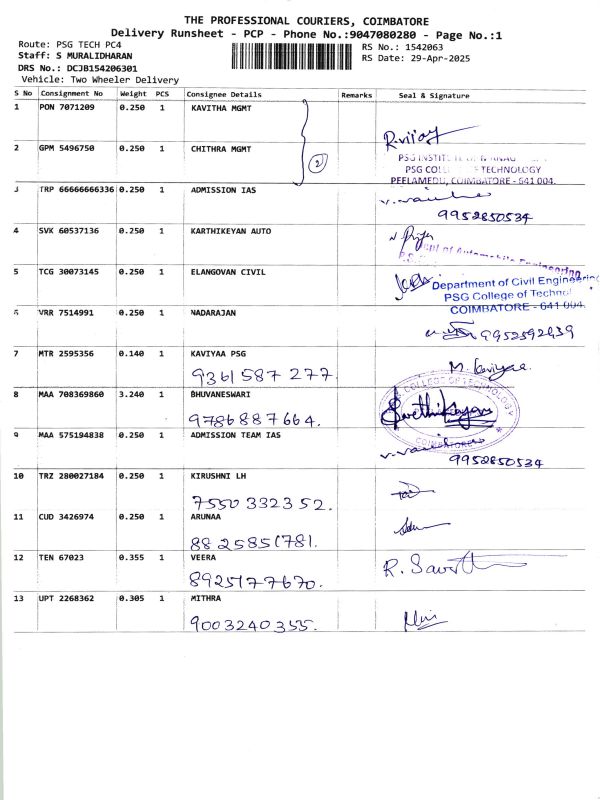 THE PROFESSIONAL COURIERS, COIMBATORE
Delivery Runsheet - PCP - Phone No.:9047080280 - Page No.:1
Route: PSG TECH PC4
RS No.: 1542063
Staff: S MURALIDHARAN
RS Date: 29-Apr-2025
DRS No.: DCJB154206301
Vehicle: Two Wheeler Delivery
S No Consignment No Weight PCS Consignee Details Remarks Seal & Signature
1 PON 7071209 0.250 1 KAVITHA MGMT
R.vijay
2 GPM 5496750 0.250 1 CHITHRA MGMT
2
PSG COLL TECHNOLOGY
PEELAMEDU, COIMBATORE - 641 004.
3 TRP 66666666336 0.250 1 ADMISSION IAS
9952850534
4 SVK 60537136 0.250 1 KARTHIKEYAN AUTO
Dept of Automobile Engineering
5 TCG 30073145 0.250 1 ELANGOVAN CIVIL
Department of Civil Engineering
PSG College of Technol
COIMBATORE - 641 004.
6 VRR 7514991 0.250 1 NADARAJAN
9952592839
7 MTR 2595356 0.140 1 KAVIYAA PSG
9361587277.
M. Kaviyaa.
8 MAA 708369860 3.240 1 BHUVANESWARI
9786887664.
COLLEGE OF TECHNOLOGY
COIMBATORE
9 MAA 575194838 0.250 1 ADMISSION TEAM IAS
9952850534
10 TRZ 280027184 0.250 1 KIRUSHNI LH
7550332352.
11 CUD 3426974 0.250 1 ARUNAA
8825851781.
12 TEN 67023 0.355 1 VEERA
8925177670.
13 UPT 2268362 0.305 1 MITHRA
9003240355.